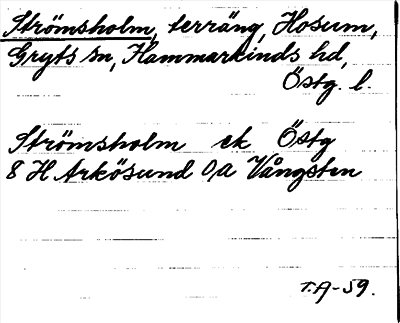 Strömsholm, terräng, Hosum,
Gryts sn, Hammarkinds hd,
Östg. l.
Strömsholm ek Östg
8 H Arkösund 0,a Vångsten
T.A-59.